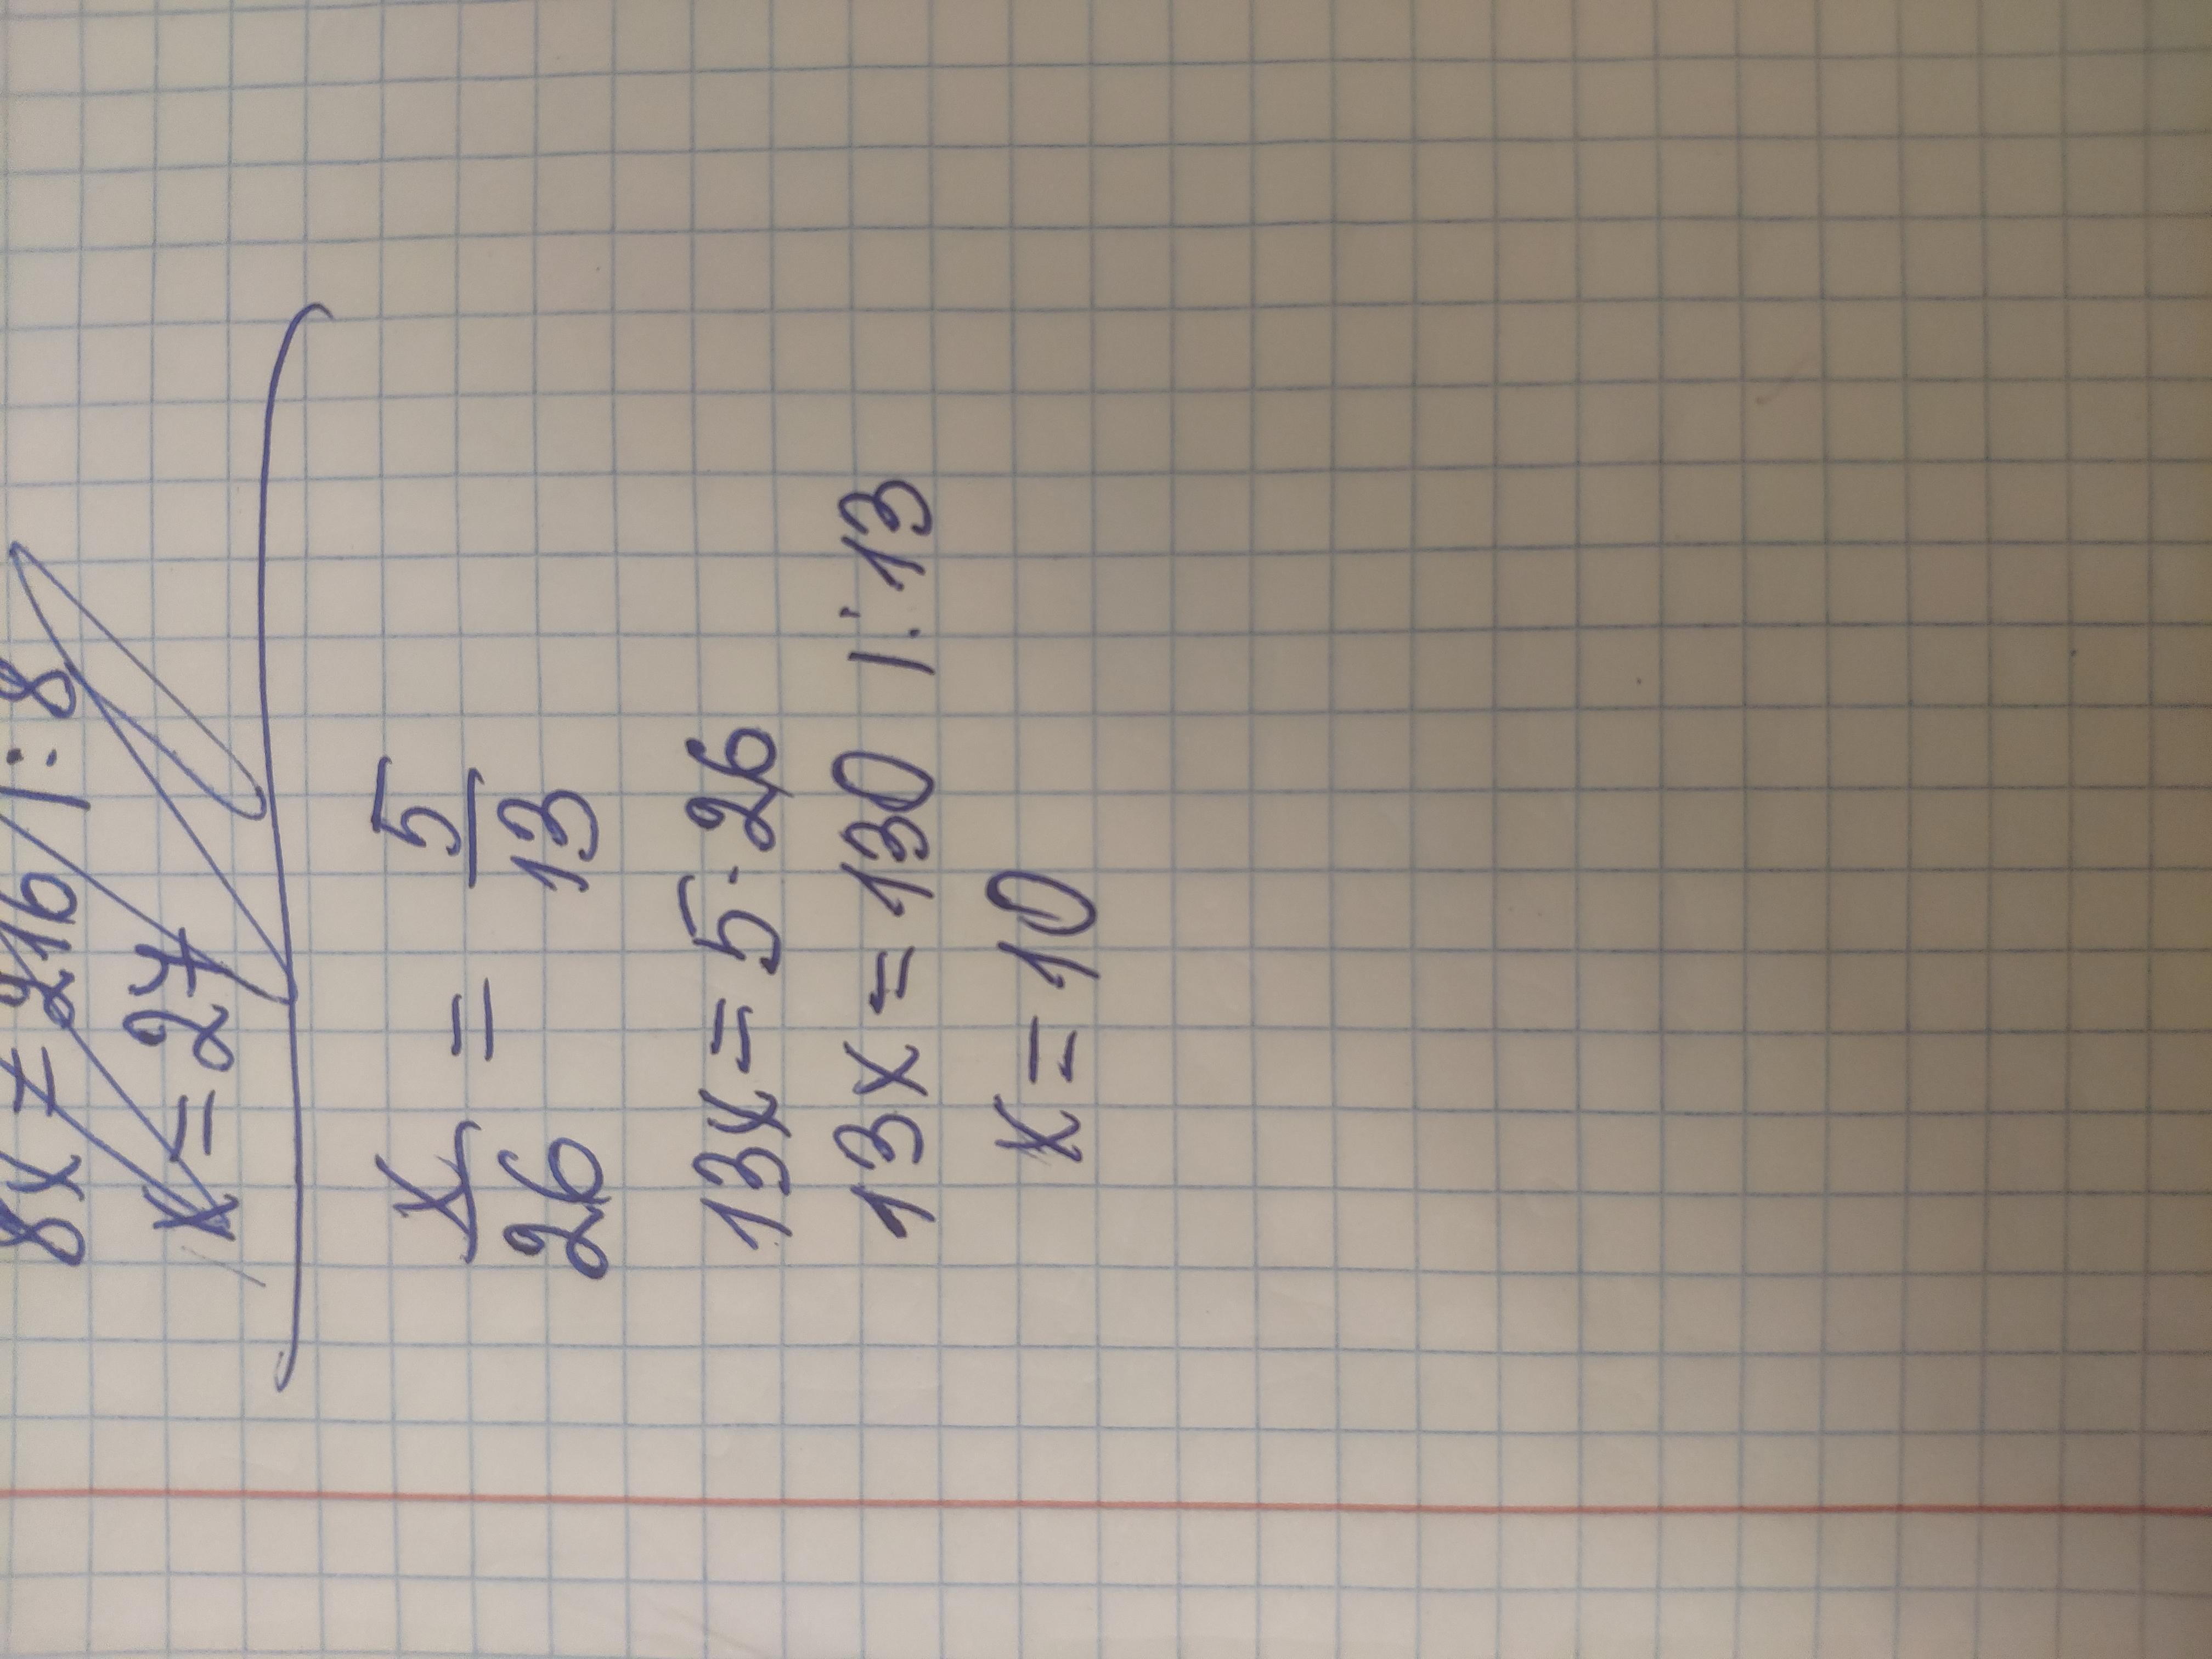 8x = 216 |:8
x = 27
x/26 = 5/13
13x = 5·26
13x = 130 |:13
x = 10